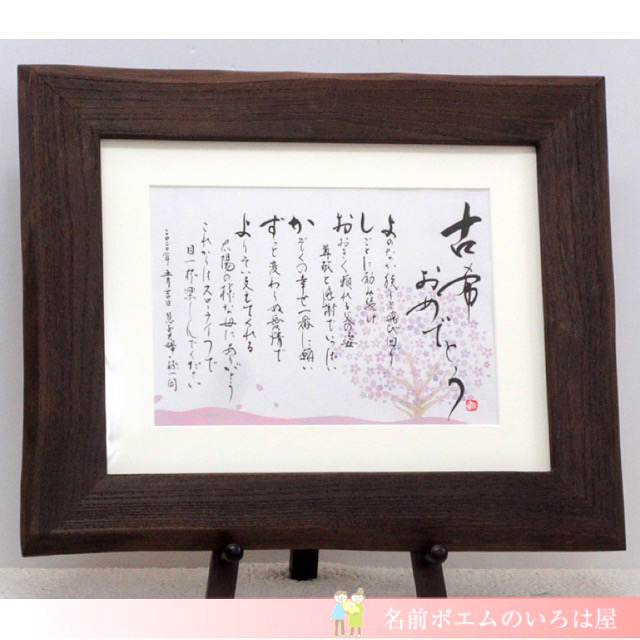 古希
おめでとう
よのなか狭しと飛び回り
しごとに励み続け
おおきく頼れる父の姿
尊敬と感謝でいっぱい
かぞくの幸せ一番に願い
ずっと変わらぬ愛情で
よりそい支えてくれる
太陽の様な母にありがとう
これからはスローライフで
目一杯楽しんでください
名前ポエムのいろは屋